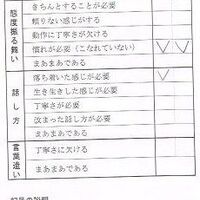 態度振る舞い
きちんとすることが必要
頼りない感じがする
動作に丁寧が欠ける
慣れが必要(こなれていない)
まあまあである
話し方
落ち着いた感じが必要
生き生きした感じが必要
丁寧さが必要
改まった話し方が必要
まあまあである
言葉遣い
丁寧さに欠ける
まあまあである